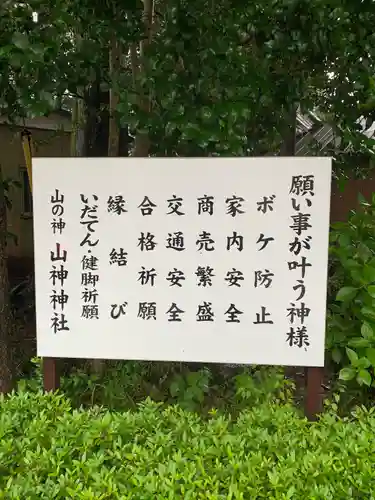 願い事が叶う神様
ボケ防止
家内安全
商売繁盛
交通安全
合格祈願
縁結び
いだてん・健脚祈願
山の神 山神神社